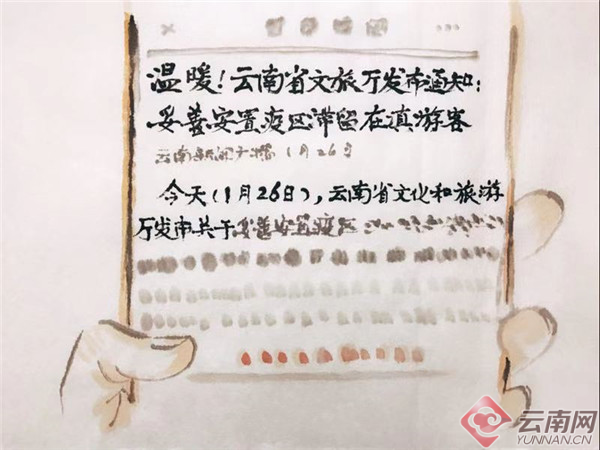 温暖！云南省文旅厅发布通知：
妥善安置疫区滞留在滇游客
云南新闻广播 1月26日
今天(1月26日)，云南省文化和旅游
厅发布关于妥善安置疫区
云南网
YUNNAN.CN